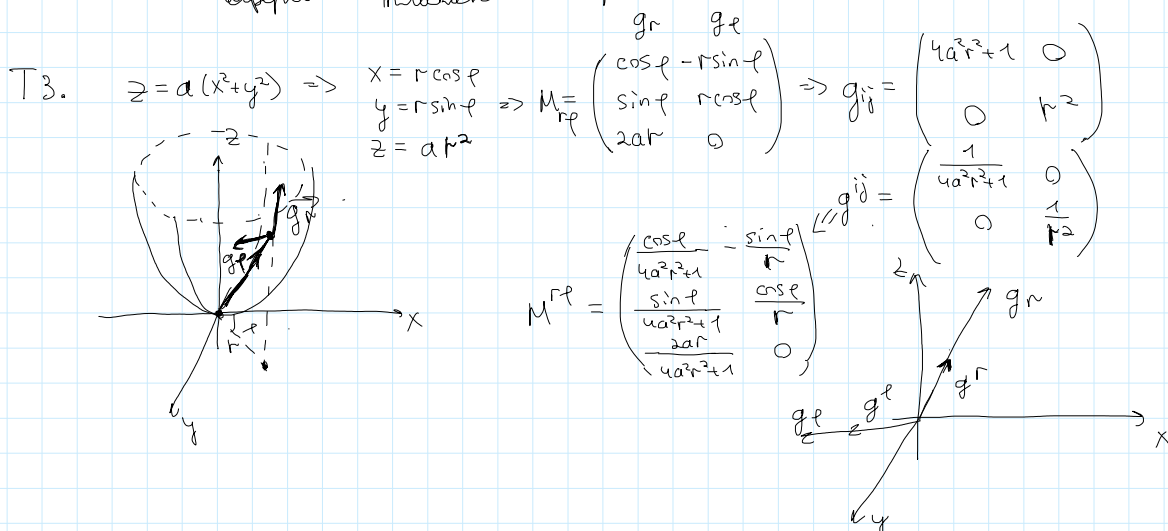 T3. z = a(x²+y²) => x = r cosφ
y = r sinφ
z = ar²
=> M_rφ = 
g_r g_φ
( cosφ -r sinφ
sinφ r cosφ
2ar 0 )
=> g_ij = ( 4a²r²+1 0
0 r² )
g^ij = ( 1/(4a²r²+1) 0
0 1/r² )
M^rφ = ( cosφ/(4a²r²+1) -sinφ/r
sinφ/(4a²r²+1) cosφ/r
2ar/(4a²r²+1) 0 )
z
g_r
g_φ
φ
r
x
y
z
g_r
g^r
g_φ g^φ
x
y